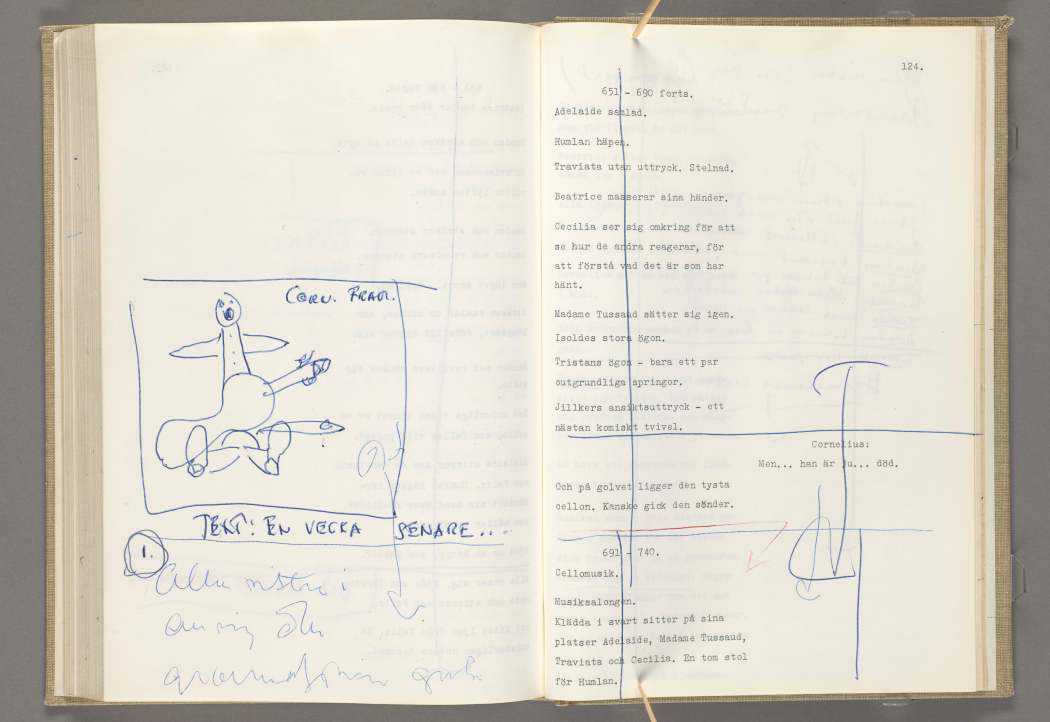 CORN. FRAM.
TEXT: EN VECKA SENARE....
1.
Alla
i
124.
651 - 690 forts.
Adelaide samlad.
Humlan häpen.
Traviata utan uttryck. Stelnad.
Beatrice masserar sina händer.
Cecilia ser sig omkring för att
se hur de andra reagerar, för
att förstå vad det är som har
hänt.
Madame Tussaud sätter sig igen.
Isoldes stora ögon.
Tristans ögon - bara ett par
outgrundliga springor.
Jillkers ansiktsuttryck - ett
nästan komiskt tvivel.
Cornelius:
Men... han är ju... död.
Och på golvet ligger den tysta
cellon. Kanske gick den sönder.
691 - 740.
Cellomusik.
Musiksalongen.
Klädda i svart sitter på sina
platser Adelaide, Madame Tussaud,
Traviata och Cecilia. En tom stol
för Humlan.